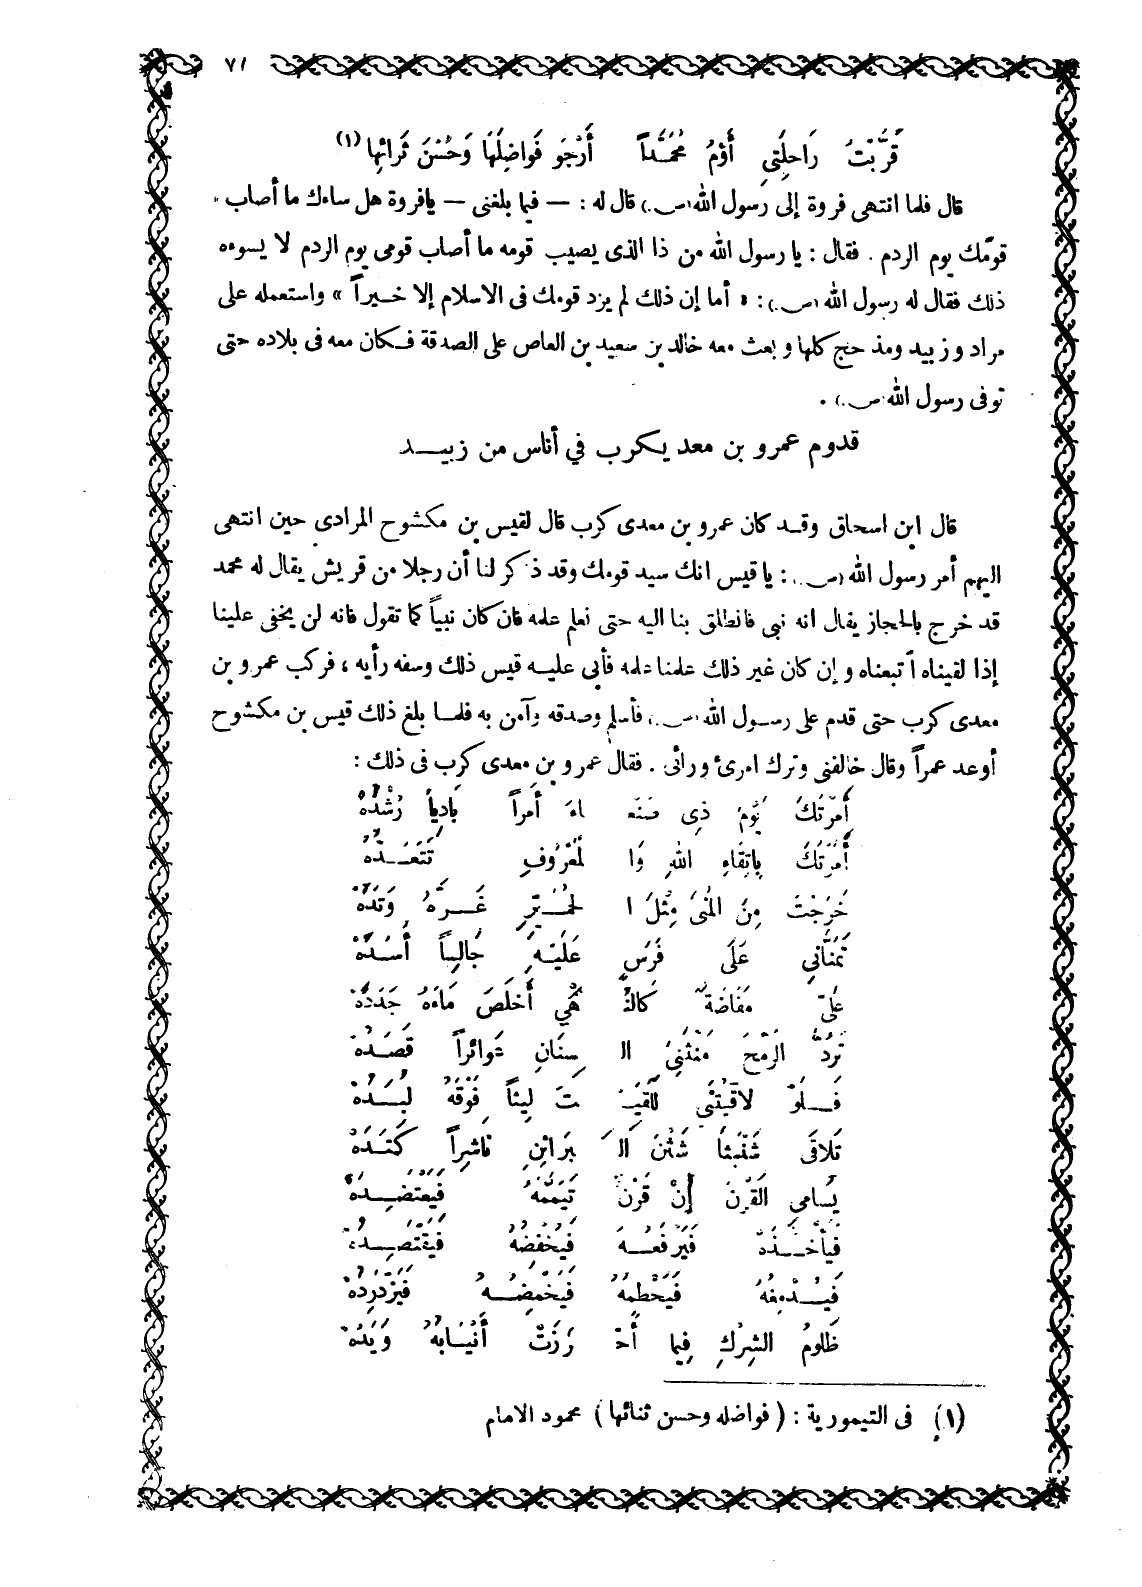 ٧١
قَرَّبْتُ رَاحِلَتِي أَؤمُّ مُحَمَّداً أَرْجُو فَوَاضِلَهَا وَحُسْنَ ثَرائِها (١)
قال فلما انتهى فروة إلى رسول الله (ص) قال له : — فيما بلغنى — يافروة هل ساءك ما أصاب
قومك يوم الردم . فقال : يا رسول الله من ذا الذى يصيب قومه ما أصاب قومى يوم الردم لا يسوءه
ذلك فقال له رسول الله (ص) : « أما إن ذلك لم يزد قومك فى الاسلام إلا خيراً » واستعمله على
مراد وزبيد ومذحج كلها وبعث معه خالد بن سعيد بن العاص على الصدقة فكان معه فى بلاده حتى
توفى رسول الله (ص) .
قدوم عمرو بن معد يكرب في أناس من زبيد
قال ابن اسحاق وقد كان عمرو بن معدى كرب قال لقيس بن مكشوح المرادى حين انتهى
اليهم أمر رسول الله (ص) : يا قيس انك سيد قومك وقد ذكر لنا أن رجلا من قريش يقال له محمد
قد خرج بالحجاز يقال انه نبى فانطلق بنا اليه حتى نعلم علمه فان كان نبياً كما تقول فانه لن يخفى علينا
إذا لقيناه اتبعناه وإن كان غير ذلك علمنا علمه فأبى عليه قيس ذلك وسفه رأيه ، فركب عمرو بن
معدى كرب حتى قدم على رسول الله (ص) فأسلم وصدقه وآمن به فلما بلغ ذلك قيس بن مكشوح
أوعد عمراً وقال خالفنى وترك امرئ ورائى . فقال عمرو بن معدى كرب فى ذلك :
أَمَرْتُكَ يَوْمَ ذِي صَنْعَاءَ أَمراً بادِياً رُشْدُهْ
أَمَرْتُكَ بِاتِقَاءِ اللهِ وَالْمَعْرُوفِ تَتَّعِدُهْ
خَرَجْتَ مِنَ الْمُنَى مِثْلَ الْحُمَيِّرِ غَرَّهُ وَتَدُهْ
تَمَنَّانِي عَلَى فَرَسٍ عَلَيْهِ جَالِساً أَسَدُهْ
عَلَيَّ مَفَاضَةٌ كَالنَّهْيِ أَخلَصَ مَاءَهُ جَدَدُهْ
تَرُدُّ الرّمْحَ مَنْثَنِيَ السِنَانِ عَوائراً قَصَدُهْ
فَلَوْ لاقَيْتَنِي لَلَقِيتَ لَيثاً فَوْقَهُ لِبَدُهْ
تَلاقَى شَنْبَثاً شَثْنَ الْبَرَاثِنِ نَاشِزاً كَتَدَهْ
يُسَامِي الْقَرْنَ إِنْ قَرْنٌ تَيَمَّمَهُ فَيَعْتَضِدُهْ
فَيَأْخُذُهُ فَيَرْفَعُهُ فَيَخْفِضُهُ فَيَقْتَصِدُهْ
فَيُدْمِغُهُ فَيَحْطِمُهُ فَيَخْمِضُهُ فَيَزْدَرِدُهْ
ظَلُومُ الشِرْكِ فِيمَا أَحْرَزَتْ أَنْيَابُهُ وَيَدُهْ
(١) فى التيمورية : ( فواضله وحسن ثنائها ) محمود الامام